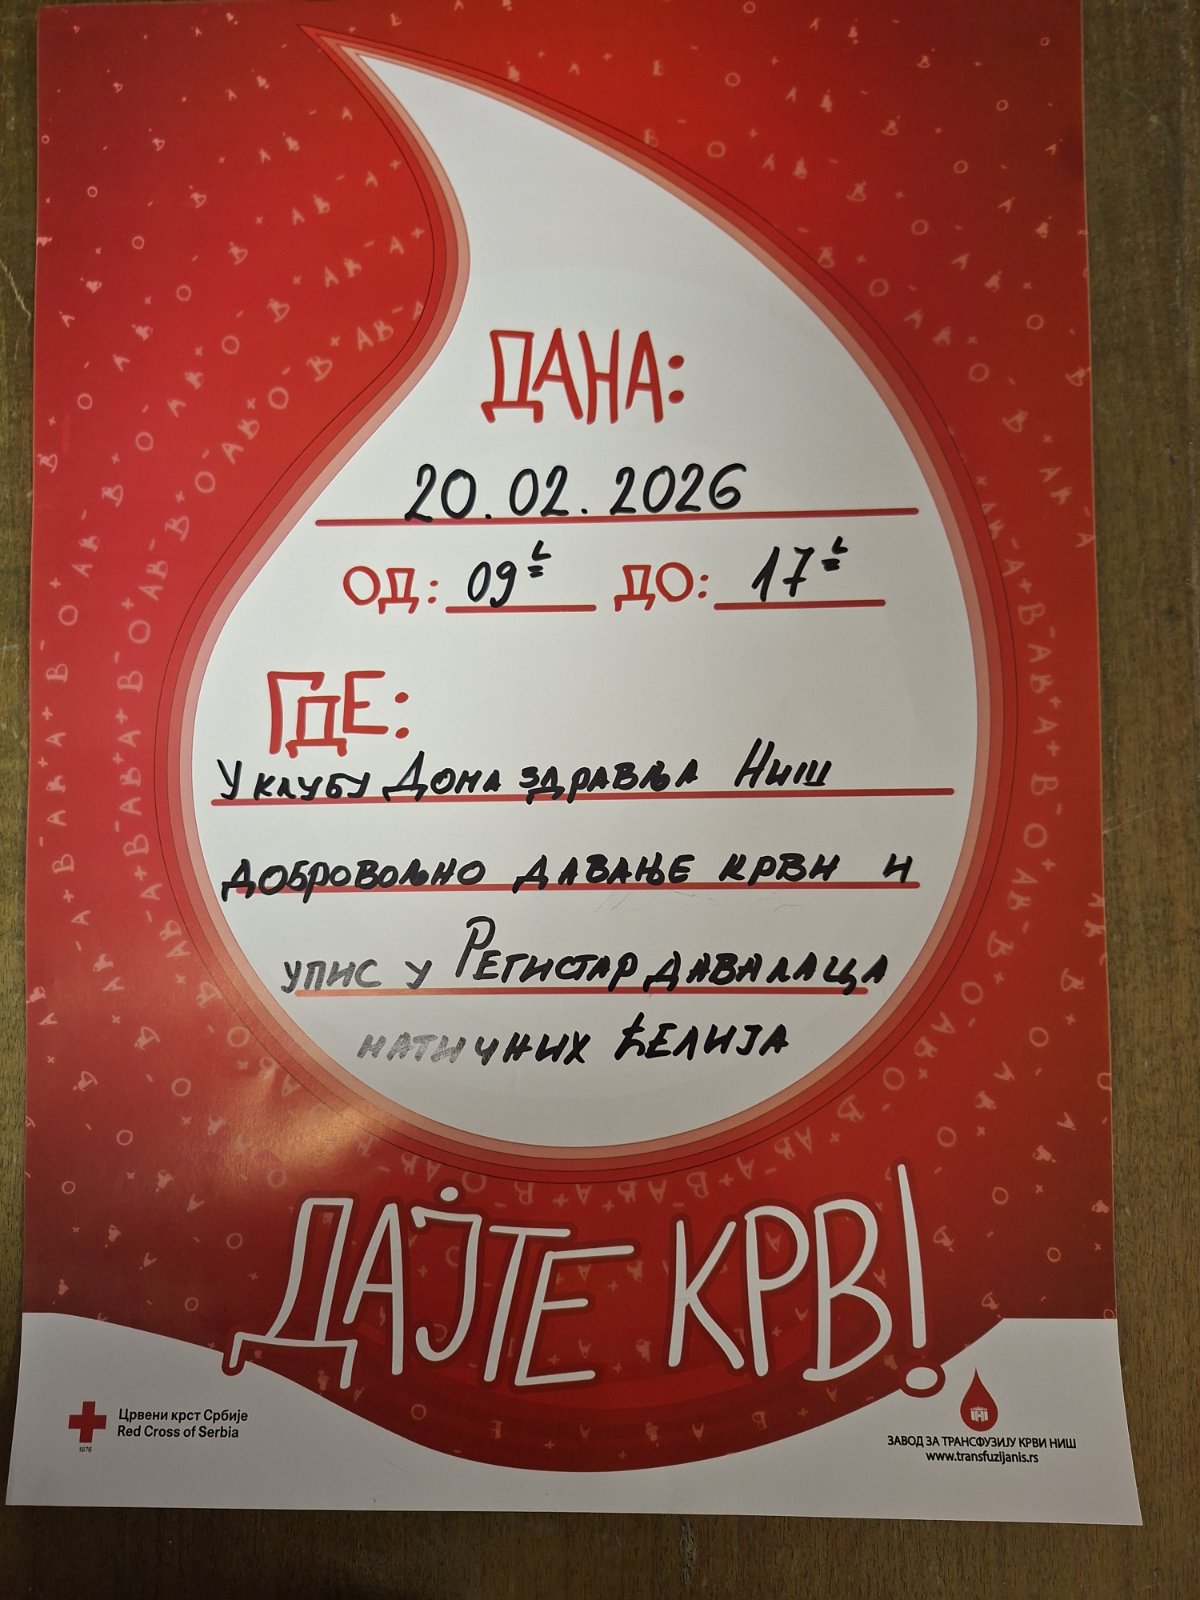 ДАНА:
20.02.2026
ОД: 09 h ДО: 17 h
ГДЕ:
У КЛУБУ ДОМА ЗДРАВЉА НИШ
ДОБРОВОЉНО ДАВАЊЕ КРВИ И
УПИС У РЕГИСТАР ДАВАЛАЦА
МАТИЧНИХ ЋЕЛИЈА
ДАЈТЕ КРВ!
Црвени крст Србије
Red Cross of Serbia
1876
ЗАВОД ЗА ТРАНСФУЗИЈУ КРВИ НИШ
www.transfuzijanis.rs